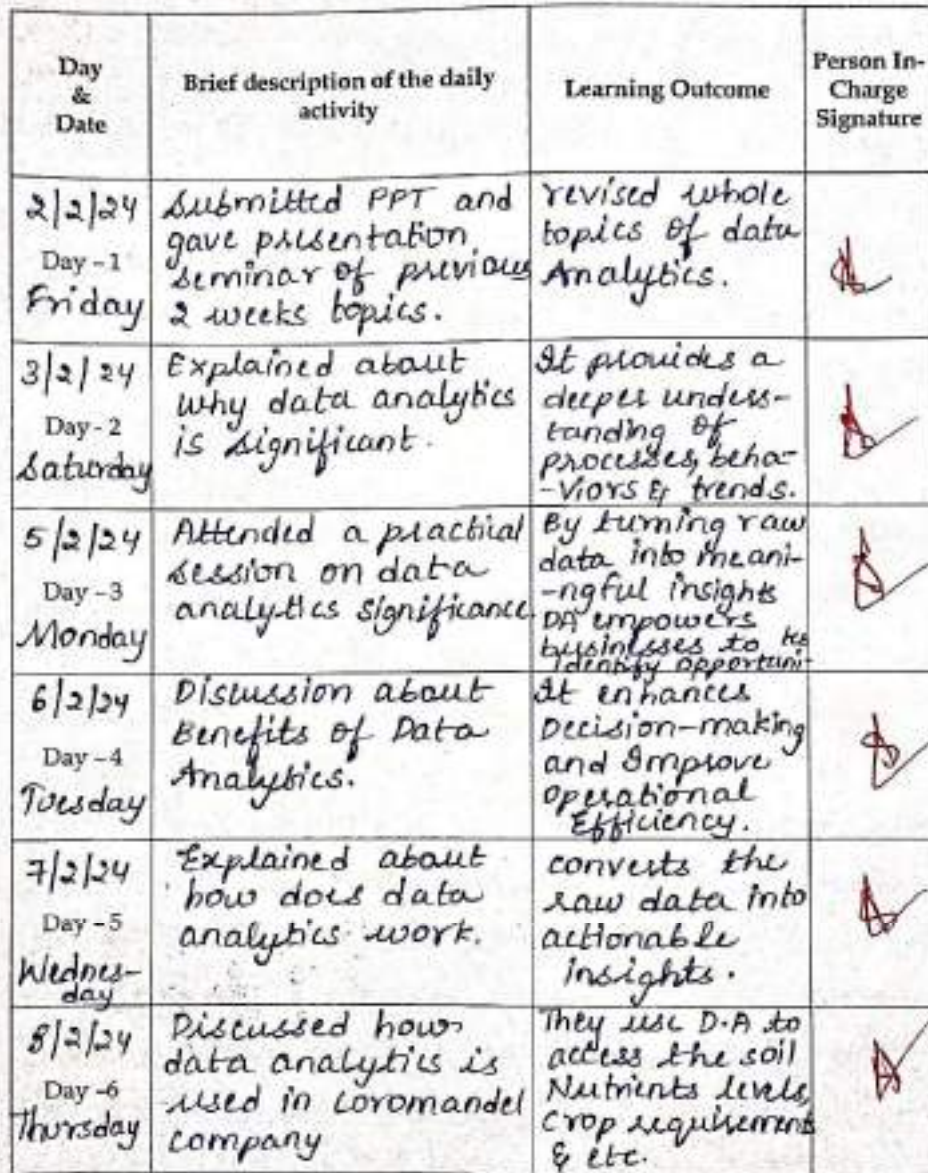 Day
&
Date
Brief description of the daily
activity
Learning Outcome
Person In-
Charge
Signature
2/2/24
Day - 1
Friday
Submitted PPT and
gave presentation
seminar of previous
2 weeks topics.
revised whole
topics of data
Analytics.
3/2/24
Day - 2
Saturday
Explained about
why data analytics
is significant.
It provides a
deeper unders-
tanding of
processes, beha-
-viors & trends.
5/2/24
Day - 3
Monday
Attended a practical
session on data
analytics significance
By turning raw
data into meani-
-ngful insights
DA empowers
businesses to
identify opportuni-
6/2/24
Day - 4
Tuesday
Discussion about
Benefits of Data
Analytics.
It enhances
Decision-making
and Improve
Operational
Efficiency.
7/2/24
Day - 5
Wednes-
day
Explained about
how does data
analytics work.
converts the
raw data into
actionable
insights.
8/2/24
Day - 6
Thursday
Discussed how
data analytics is
used in coromandel
company
They use D.A to
access the soil
Nutrients levels,
crop requirements
& etc.